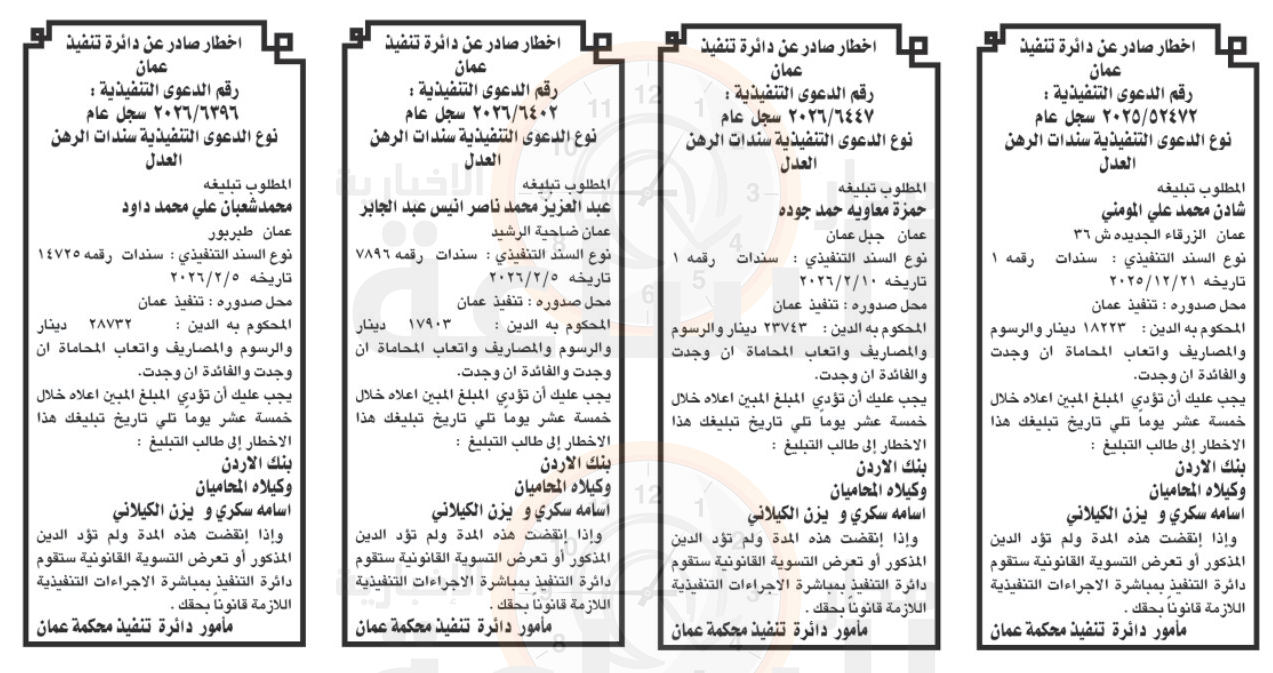 اخطار صادر عن دائرة تنفيذ
عمان
رقم الدعوى التنفيذية :
٢٠٢٥/٥٢٤٧٢ سجل عام
نوع الدعوى التنفيذية سندات الرهن
العدل
المطلوب تبليغه
شادن محمد علي المومني
عمان الزرقاء الجديده ش ٣٦
نوع السند التنفيذي : سندات رقمه ١
تاريخه ٢٠٢٥/١٢/٢١
محل صدوره : تنفيذ عمان
المحكوم به الدين : ١٨٢٢٣ دينار والرسوم
والمصاريف واتعاب المحاماة ان وجدت
والفائدة ان وجدت.
يجب عليك أن تؤدي المبلغ المبين اعلاه خلال
خمسة عشر يوماً تلي تاريخ تبليغك هذا
الاخطار إلى طالب التبليغ :
بنك الاردن
وكيلاه المحاميان
اسامه سكري و يزن الكيلاني
وإذا إنقضت هذه المدة ولم تؤد الدين
المذكور أو تعرض التسوية القانونية ستقوم
دائرة التنفيذ بمباشرة الاجراءات التنفيذية
اللازمة قانوناً بحقك .
مأمور دائرة تنفيذ محكمة عمان
اخطار صادر عن دائرة تنفيذ
عمان
رقم الدعوى التنفيذية :
٢٠٢٦/٦٤٤٧ سجل عام
نوع الدعوى التنفيذية سندات الرهن
العدل
المطلوب تبليغه
حمزة معاويه حمد جوده
عمان جبل عمان
نوع السند التنفيذي : سندات رقمه ١
تاريخه ٢٠٢٦/٢/١٠
محل صدوره : تنفيذ عمان
المحكوم به الدين : ٢٣٧٤٣ دينار والرسوم
والمصاريف واتعاب المحاماة ان وجدت
والفائدة ان وجدت.
يجب عليك أن تؤدي المبلغ المبين اعلاه خلال
خمسة عشر يوماً تلي تاريخ تبليغك هذا
الاخطار إلى طالب التبليغ :
بنك الاردن
وكيلاه المحاميان
اسامه سكري و يزن الكيلاني
وإذا إنقضت هذه المدة ولم تؤد الدين
المذكور أو تعرض التسوية القانونية ستقوم
دائرة التنفيذ بمباشرة الاجراءات التنفيذية
اللازمة قانوناً بحقك .
مأمور دائرة تنفيذ محكمة عمان
اخطار صادر عن دائرة تنفيذ
عمان
رقم الدعوى التنفيذية :
٢٠٢٦/٦٤٠٢ سجل عام
نوع الدعوى التنفيذية سندات الرهن
العدل
المطلوب تبليغه
عبد العزيز محمد ناصر انيس عبد الجابر
عمان ضاحية الرشيد
نوع السند التنفيذي : سندات رقمه ٧٨٩٦
تاريخه ٢٠٢٦/٢/٥
محل صدوره : تنفيذ عمان
المحكوم به الدين : ١٧٩٠٣ دينار
والرسوم والمصاريف واتعاب المحاماة ان
وجدت والفائدة ان وجدت.
يجب عليك أن تؤدي المبلغ المبين اعلاه خلال
خمسة عشر يوماً تلي تاريخ تبليغك هذا
الاخطار إلى طالب التبليغ :
بنك الاردن
وكيلاه المحاميان
اسامه سكري و يزن الكيلاني
وإذا إنقضت هذه المدة ولم تؤد الدين
المذكور أو تعرض التسوية القانونية ستقوم
دائرة التنفيذ بمباشرة الاجراءات التنفيذية
اللازمة قانوناً بحقك .
مأمور دائرة تنفيذ محكمة عمان
اخطار صادر عن دائرة تنفيذ
عمان
رقم الدعوى التنفيذية :
٢٠٢٦/٦٣٩٦ سجل عام
نوع الدعوى التنفيذية سندات الرهن
العدل
المطلوب تبليغه
محمدشعبان علي محمد داود
عمان طبربور
نوع السند التنفيذي : سندات رقمه ١٤٧٢٥
تاريخه ٢٠٢٦/٢/٥
محل صدوره : تنفيذ عمان
المحكوم به الدين : ٢٨٧٣٢ دينار
والرسوم والمصاريف واتعاب المحاماة ان
وجدت والفائدة ان وجدت.
يجب عليك أن تؤدي المبلغ المبين اعلاه خلال
خمسة عشر يوماً تلي تاريخ تبليغك هذا
الاخطار إلى طالب التبليغ :
بنك الاردن
وكيلاه المحاميان
اسامه سكري و يزن الكيلاني
وإذا إنقضت هذه المدة ولم تؤد الدين
المذكور أو تعرض التسوية القانونية ستقوم
دائرة التنفيذ بمباشرة الاجراءات التنفيذية
اللازمة قانوناً بحقك .
مأمور دائرة تنفيذ محكمة عمان